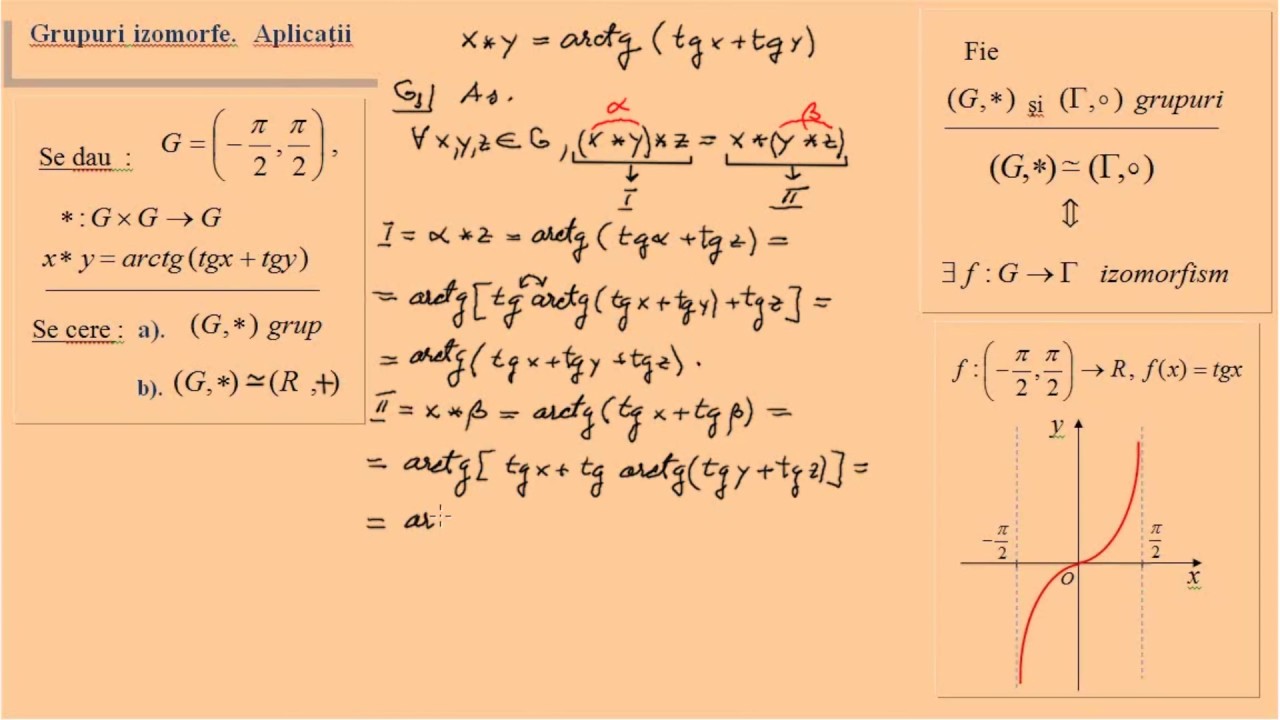 Grupuri izomorfe. Aplicaţii
Se dau : G = (−π/2, π/2) ,
* : G × G → G
x * y = arctg (tgx + tgy)
Se cere : a). (G,*) grup
b). (G,*) ≃ (R ,+)
x * y = arctg (tg x + tg y)
G₁) As.
∀ x,y,z ∈ G , (x * y) * z = x * (y * z)
α β
I II
I = α * z = arctg (tg α + tg z) =
= arctg [tg arctg (tg x + tg y) + tg z] =
= arctg (tg x + tg y + tg z) .
II = x * β = arctg (tg x + tg β) =
= arctg [ tg x + tg arctg (tg y + tg z)] =
= ar
Fie
(G,*) şi (Γ,∘) grupuri
(G,*) ≃ (Γ,∘)
⇕
∃ f : G → Γ izomorfism
f : (−π/2, π/2) → R, f(x) = tgx
y
−π/2
π/2
O
x